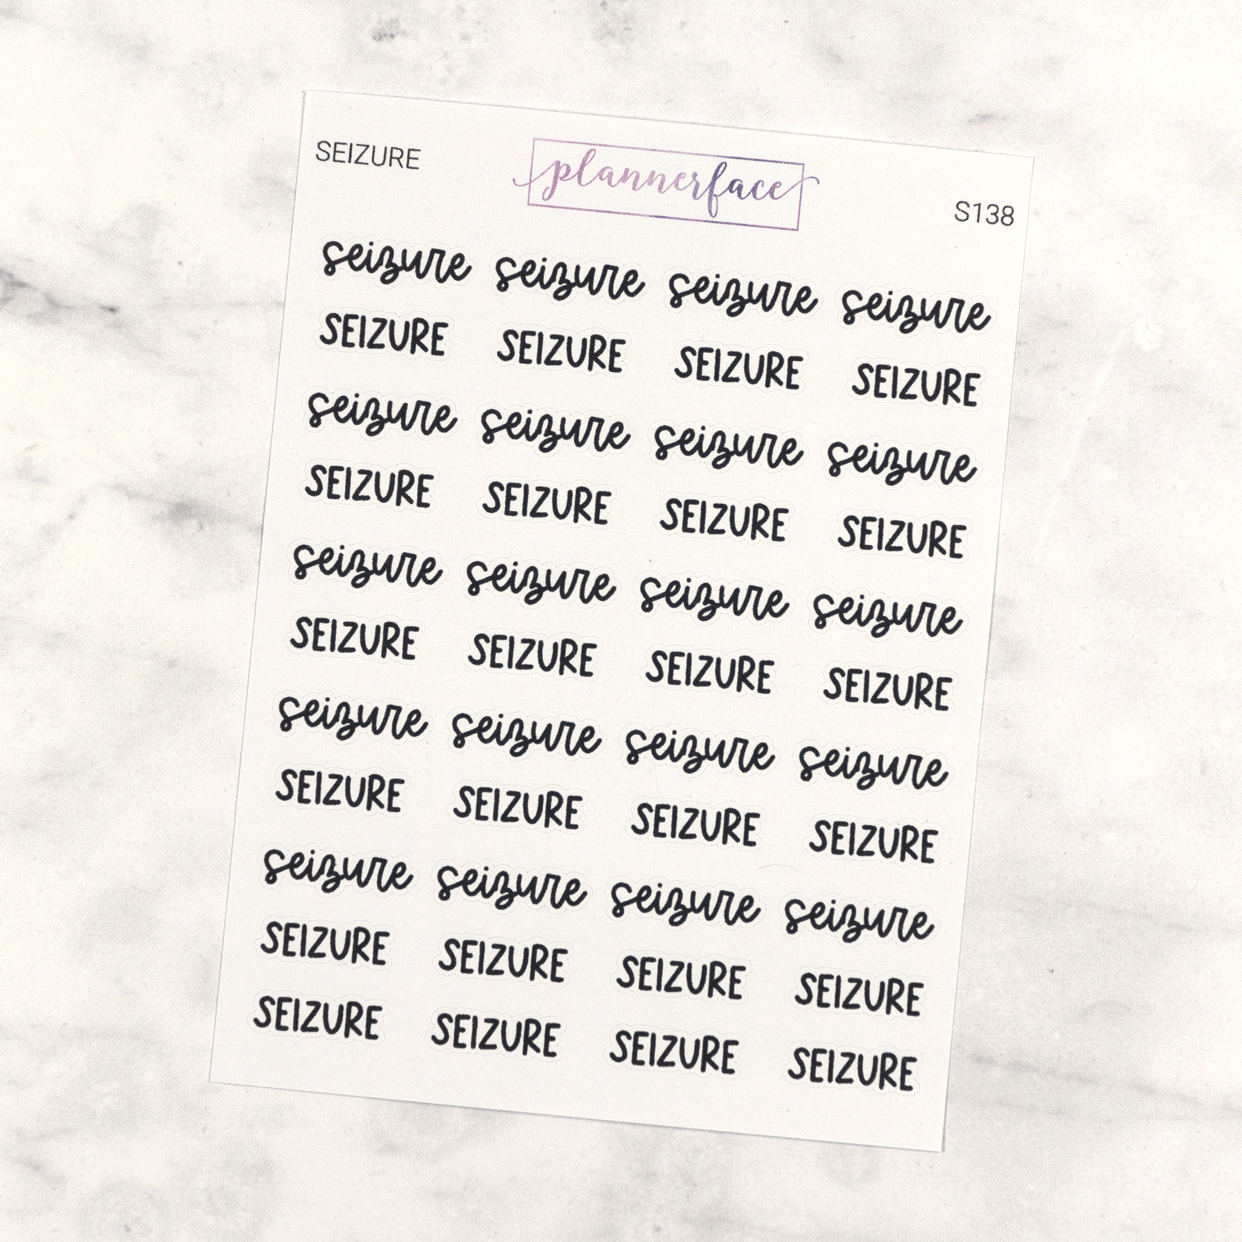 SEIZURE plannerface S138
seizure seizure seizure seizure
SEIZURE SEIZURE SEIZURE SEIZURE
seizure seizure seizure seizure
SEIZURE SEIZURE SEIZURE SEIZURE
seizure seizure seizure seizure
SEIZURE SEIZURE SEIZURE SEIZURE
seizure seizure seizure seizure
SEIZURE SEIZURE SEIZURE SEIZURE
seizure seizure seizure seizure
SEIZURE SEIZURE SEIZURE SEIZURE
SEIZURE SEIZURE SEIZURE SEIZURE